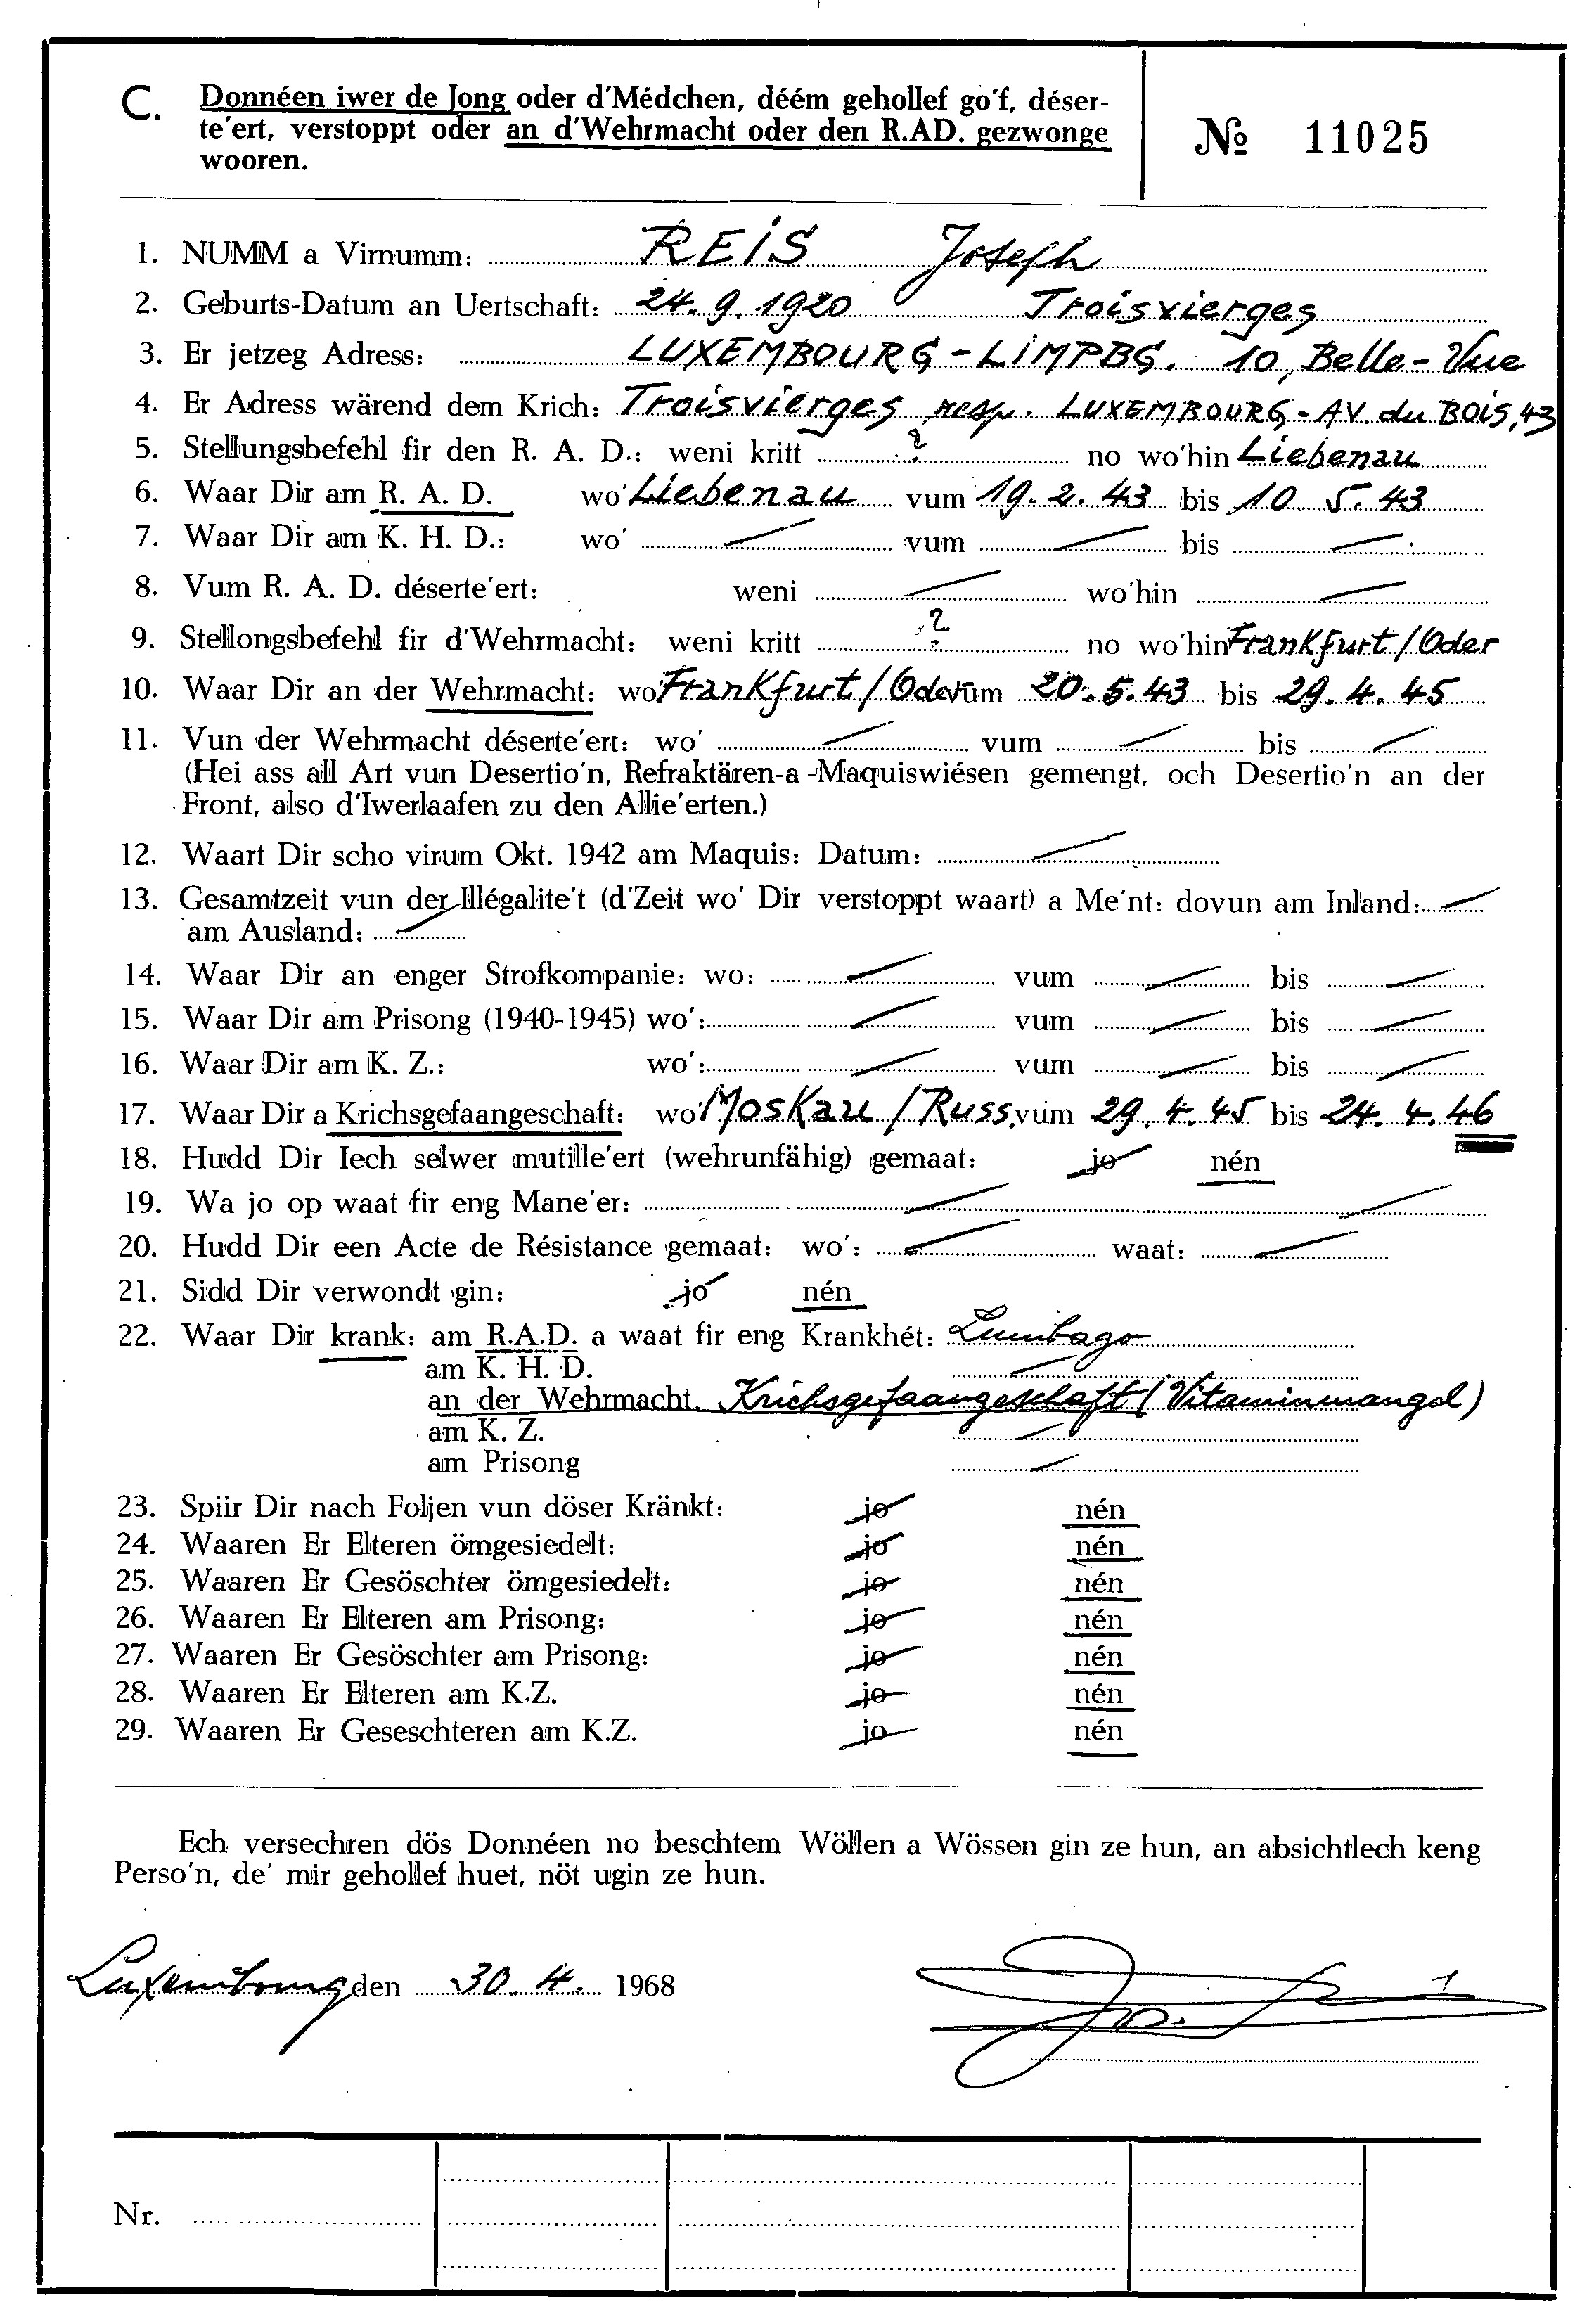 C. Donnéen iwer de Jong oder d'Médchen, déém gehollef go'f, déser-
te'ert, verstoppt oder an d'Wehrmacht oder den R.AD. gezwonge
wooren.
№ 11025
1. NUMM a Virnumm: REIS Joseph
2. Geburts-Datum an Uertschaft: 24.9.1920 Troisvierges
3. Er jetzeg Adress: LUXEMBOURG-LIMPBG. 10, Belle-Vue
4. Er Adress wärend dem Krich: Troisvierges resp. LUXEMBOURG-AV. du BOIS, 43
5. Stellungsbefehl fir den R. A. D.: weni kritt ? no wo'hin Liebenau
6. Waar Dir am R. A. D. wo' Liebenau vum 19.2.43 bis 10.5.43
7. Waar Dir am K. H. D.: wo' — vum — bis —
8. Vum R. A. D. déserte'ert: weni — wo'hin —
9. Stellongsbefehl fir d'Wehrmacht: weni kritt ? no wo'hin Frankfurt/Oder
10. Waar Dir an der Wehrmacht: wo' Frankfurt/Oder vum 20.5.43 bis 29.4.45
11. Vun der Wehrmacht déserte'ert: wo' — vum — bis —
(Hei ass all Art vun Desertio'n, Refraktären-a -Maquiswiésen gemengt, och Desertio'n an der
Front, also d'Iwerlaafen zu den Allie'erten.)
12. Waart Dir scho virum Okt. 1942 am Maquis: Datum: —
13. Gesamtzeit vun der Illégalite't (d'Zeit wo' Dir verstoppt waart) a Me'nt: dovun am Inland: —
am Ausland: —
14. Waar Dir an enger Strofkompanie: wo: — vum — bis —
15. Waar Dir am Prisong (1940-1945) wo': — vum — bis —
16. Waar Dir am K. Z.: wo': — vum — bis —
17. Waar Dir a Krichsgefaangeschaft: wo' Moskau/Russ. vum 29.4.45 bis 24.4.46
18. Hudd Dir Iech selwer mutille'ert (wehrunfähig) gemaat: jo nén
19. Wa jo op waat fir eng Mane'er: — —
20. Hudd Dir een Acte de Résistance gemaat: wo': — waat: —
21. Sidd Dir verwondt gin: jo nén
22. Waar Dir krank: am R.A.D. a waat fir eng Krankhét: Lumbago
am K. H. D. —
an der Wehrmacht. Krichsgefaangeschaft (Vitaminmangel)
am K. Z. —
am Prisong —
23. Spiir Dir nach Foljen vun döser Kränkt: jo nén
24. Waaren Er Elteren ömgesiedelt: jo nén
25. Waaren Er Gesöschter ömgesiedelt: jo nén
26. Waaren Er Elteren am Prisong: jo nén
27. Waaren Er Gesöschter am Prisong: jo nén
28. Waaren Er Elteren am K.Z. jo nén
29. Waaren Er Geseschteren am K.Z. jo nén
Ech versechren dös Donnéen no beschtem Wöllen a Wössen gin ze hun, an absichtlech keng
Perso'n, de' mir gehollef huet, nöt ugin ze hun.
Luxembourg den 30.4. 1968
Nr.